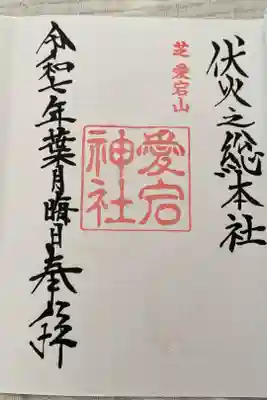 伏火之総本社
芝愛宕山
愛宕
神社
令和七年葉月晦日奉拝